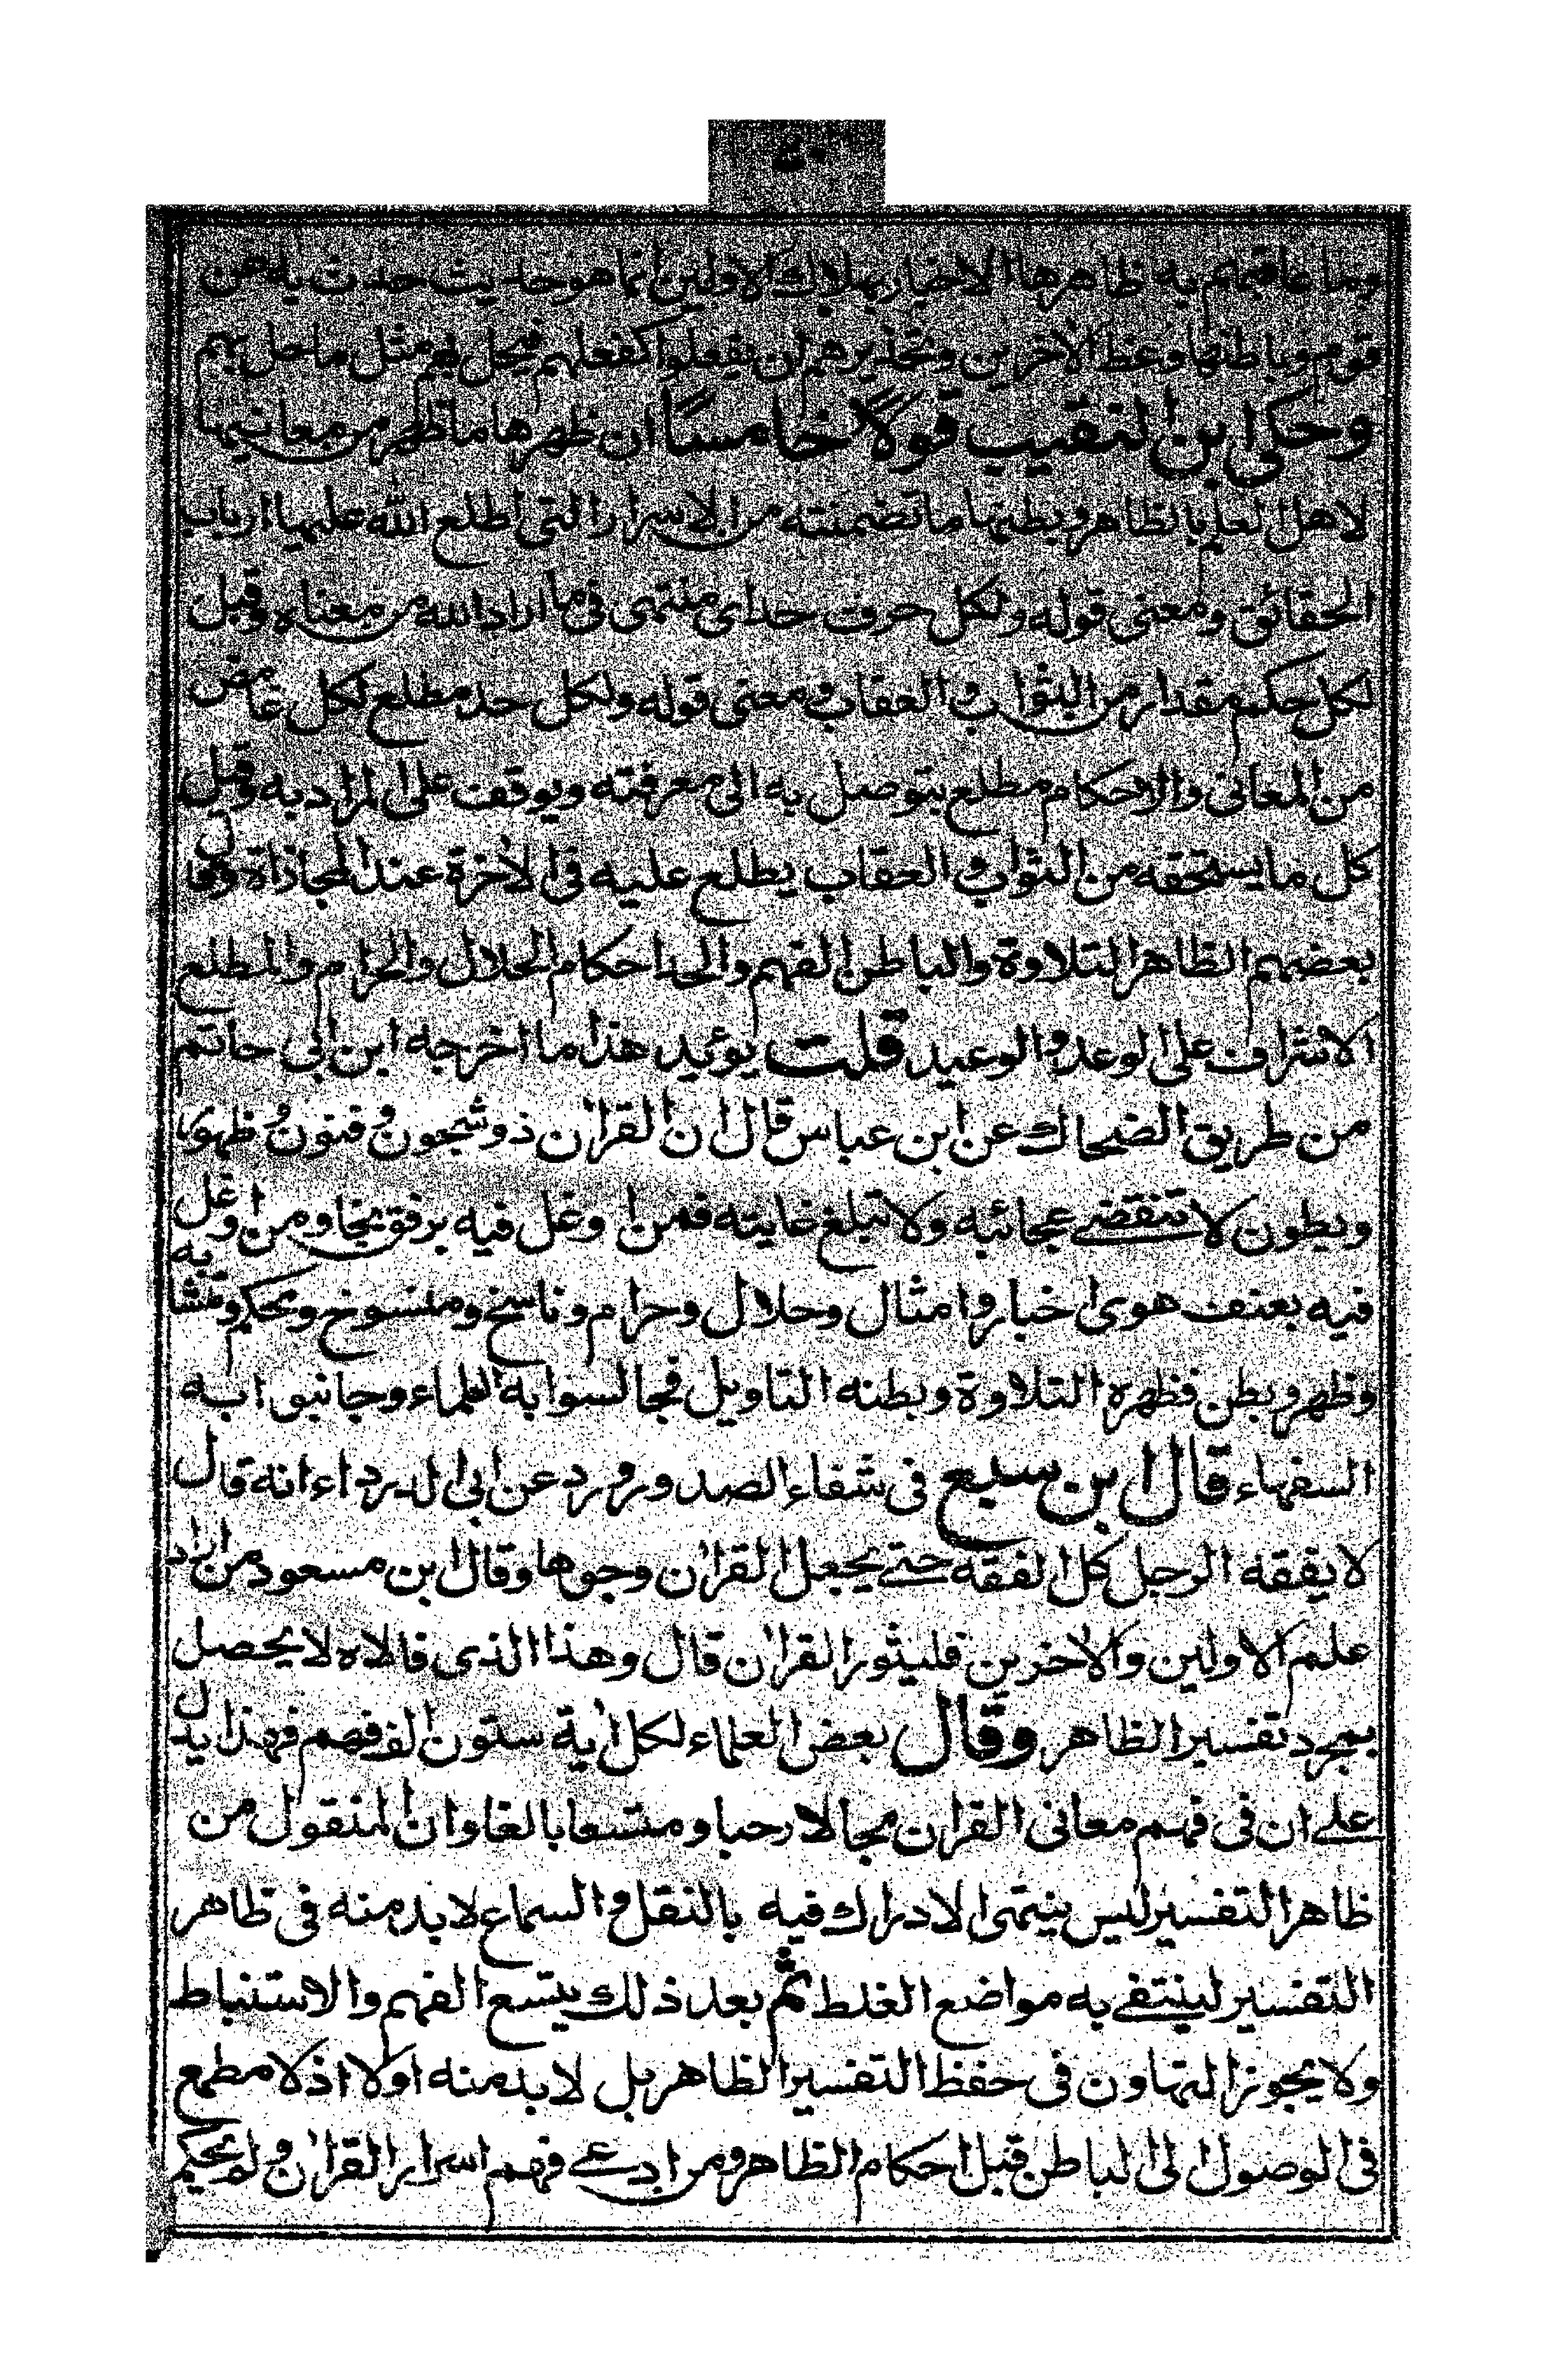 وما عاقبهم به ظاهرها الاخبار بهلاك الاولين انما هو حديث حدث به عن
قوم وباطنها وعظ الاخرين وتحذيرهم ان يفعلوا كفعلهم فيحل بهم مثل ما حل بهم
وحكى ابن النقيب قولا خامسا ان ظهرها ما ظهر من معانيها
لاهل العلم بالظاهر وبطنها ما تضمنته من الاسرار التى اطلع الله عليها ارباب
الحقائق ومعنى قوله ولكل حرف حد اى منتهى فى ما اراد الله من معناه وقيل
لكل حكم مقدار من الثواب والعقاب ومعنى قوله ولكل حد مطلع لكل غامض
من المعانى والاحكام مطلع يتوصل به الى معرفته ويوقف على المراد به وقيل
كل ما يستحقه من الثواب والعقاب يطلع عليه فى الاخرة عند المجازاة وقال
بعضهم الظاهر التلاوة والباطن الفهم والحد احكام الحلال والحرام والمطلع
الاشراف على الوعد والوعيد قلت يؤيد هذا ما اخرجه ابن ابى حاتم
من طريق الضحاك عن ابن عباس قال ان القران ذو شجون وفنون وظهور
وبطون لا تنقضے عجائبه ولا تبلغ غايته فمن اوغل فيه برفق نجا ومن اوغل
فيه بعنف هوى اخبار وامثال وحلال وحرام وناسخ ومنسوخ ومحكم ومتشابه
وظهر وبطن فظهره التلاوة وبطنه التاويل فجالسوا به العلماء وجانبوا به
السفهاء قال ابن سبع فى شفاء الصدور ورد عن ابى الدرداء انه قال
لا يفقه الرجل كل الفقه حتے يجعل القران وجوها وقال ابن مسعود من اراد
علم الاولين والاخرين فليثور القران قال وهذا الذى قالاه لا يحصل
بمجرد تفسير الظاهر وقال بعض العلماء لكل اية ستون الف فهم فهذا يدل
علے ان فى فهم معانى القران مجالا رحبا ومتسعا بالغا وان المنقول من
ظاهر التفسير ليس ينتهى الادراك فيه بالنقل والسماع لا بد منه فى ظاهر
التفسير لينتفے به مواضع الغلط ثم بعد ذلك يتسع الفهم والاستنباط
ولا يجوز التهاون فى حفظ التفسير الظاهر بل لا بد منه اولا اذ لا مطمع
فى الوصول الى الباطن قبل احكام الظاهر ومن ادعے فهم اسرار القران ولم يحكم